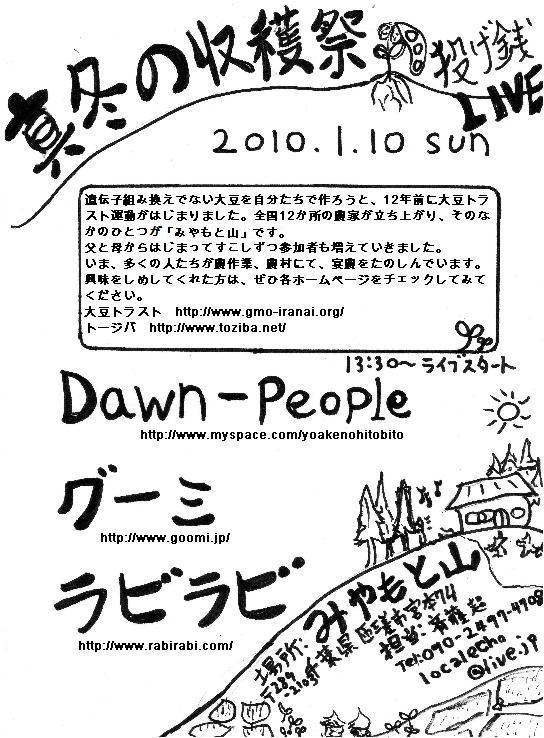 真冬の収穫祭
投げ銭
LIVE
2010.1.10 sun
遺伝子組み換えでない大豆を自分たちで作ろうと、12年前に大豆トラ
スト運動がはじまりました。全国12か所の農家が立ち上がり、そのな
かのひとつが「みやもと山」です。
父と母からはじまってすこしずつ参加者も増えていきました。
いま、多くの人たちが農作業、農村にて、宴農をたのしんでいます。
興味をしめしてくれた方は、ぜひ各ホームページをチェックしてみて
ください。
大豆トラスト http://www.gmo-iranai.org/
トージバ http://www.toziba.net/
13:30〜ライブスタート
Dawn-People
http://www.myspace.com/yoakenohitobito
グーミ
http://www.goomi.jp/
ラビラビ
http://www.rabirabi.com/
場所: みやもと山
〒289-2103 千葉県匝瑳市宮本74
担当: 斉藤 超
Tel: 090-2497-4908
localecho
@live.jp